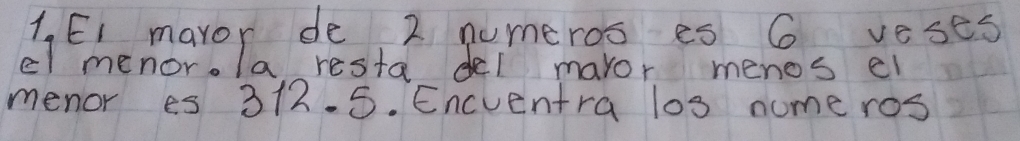 1. El mayor de 2 numeros es 6 veses
el menor. la resta del mayor menos el
menor es 312.5. Encuentra los numeros